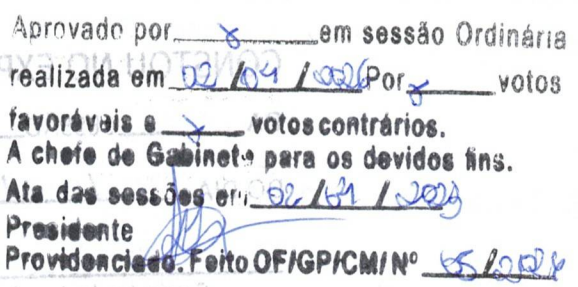 Aprovado por em sessão Ordinária
realizada em 02/04/2026 Por votos
favoráveis e votos contrários.
A chefe de Gabinete para os devidos fins.
Ata das sessões em 02/04/
Presidente
Providenciado. Feito OF/GP/CM/ Nº